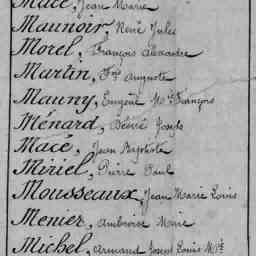 Macé, Jean Marie
Maunoir, René Jules
Morel, François Alexandre
Martin, Fois Auguste
Mauny, Eugène Me François
Ménard, Désiré Joseph
Macé, Jean Baptiste
Miriel, Pierre Paul
Mousseaux, Jean Marie Louis
Menier, Ambroise Marie
Michel, Armand Joseph Louis Mie